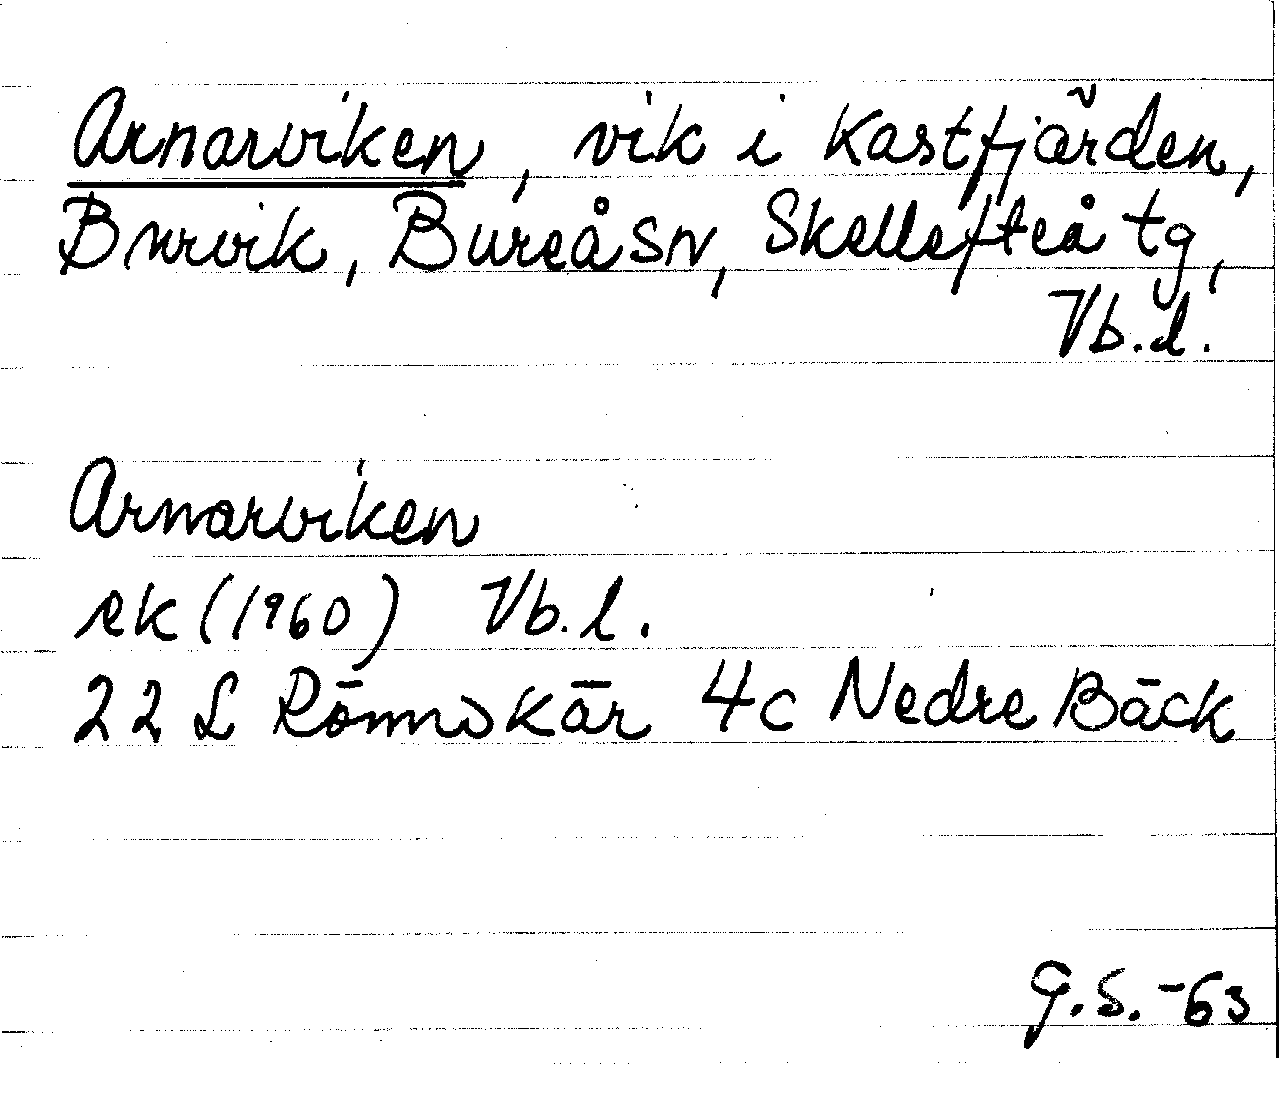 Arnarviken, vik i Kastfjärden,
Burvik, Bureå sn, Skellefteå tg,
Vb.l.
Arnarviken
ek (1960) Vb.l.
22 L Rönnskär 4c Nedre Bäck
G.S.-63